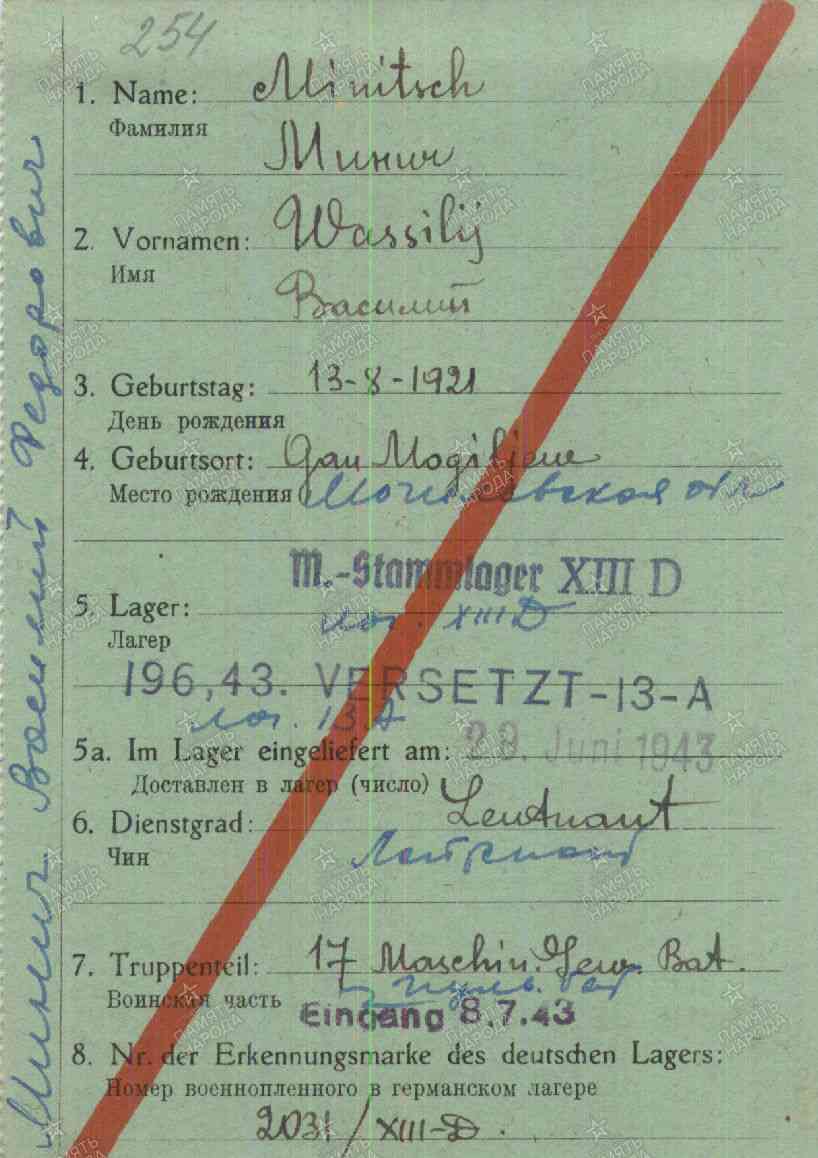 254
1. Name: Minitsch
Фамилия
Минич
2. Vornamen: Wassilij
Имя
Василий
3. Geburtstag: 13-8-1921
День рождения
4. Geburtsort: Gau Mogiljew
Место рождения Могилевская обл
M.-Stammlager XIII D
5. Lager:
лаг. XIII D
Лагер
196,43. VERSETZT-13-A
лаг. 13 A
5a. Im Lager eingeliefert am: 29. Juni 1943
Доставлен в лагер (число)
6. Dienstgrad: Leutnant
Чин Лейтенант
7. Truppenteil: 17 Maschin. Gew. Bat.
Воинская часть 17 пульб. бат
Eingang 8.7.43
8. Nr. der Erkennungsmarke des deutschen Lagers:
Номер военнопленного в германском лагере
2031/XIII-D.
Минич Василий Федорович